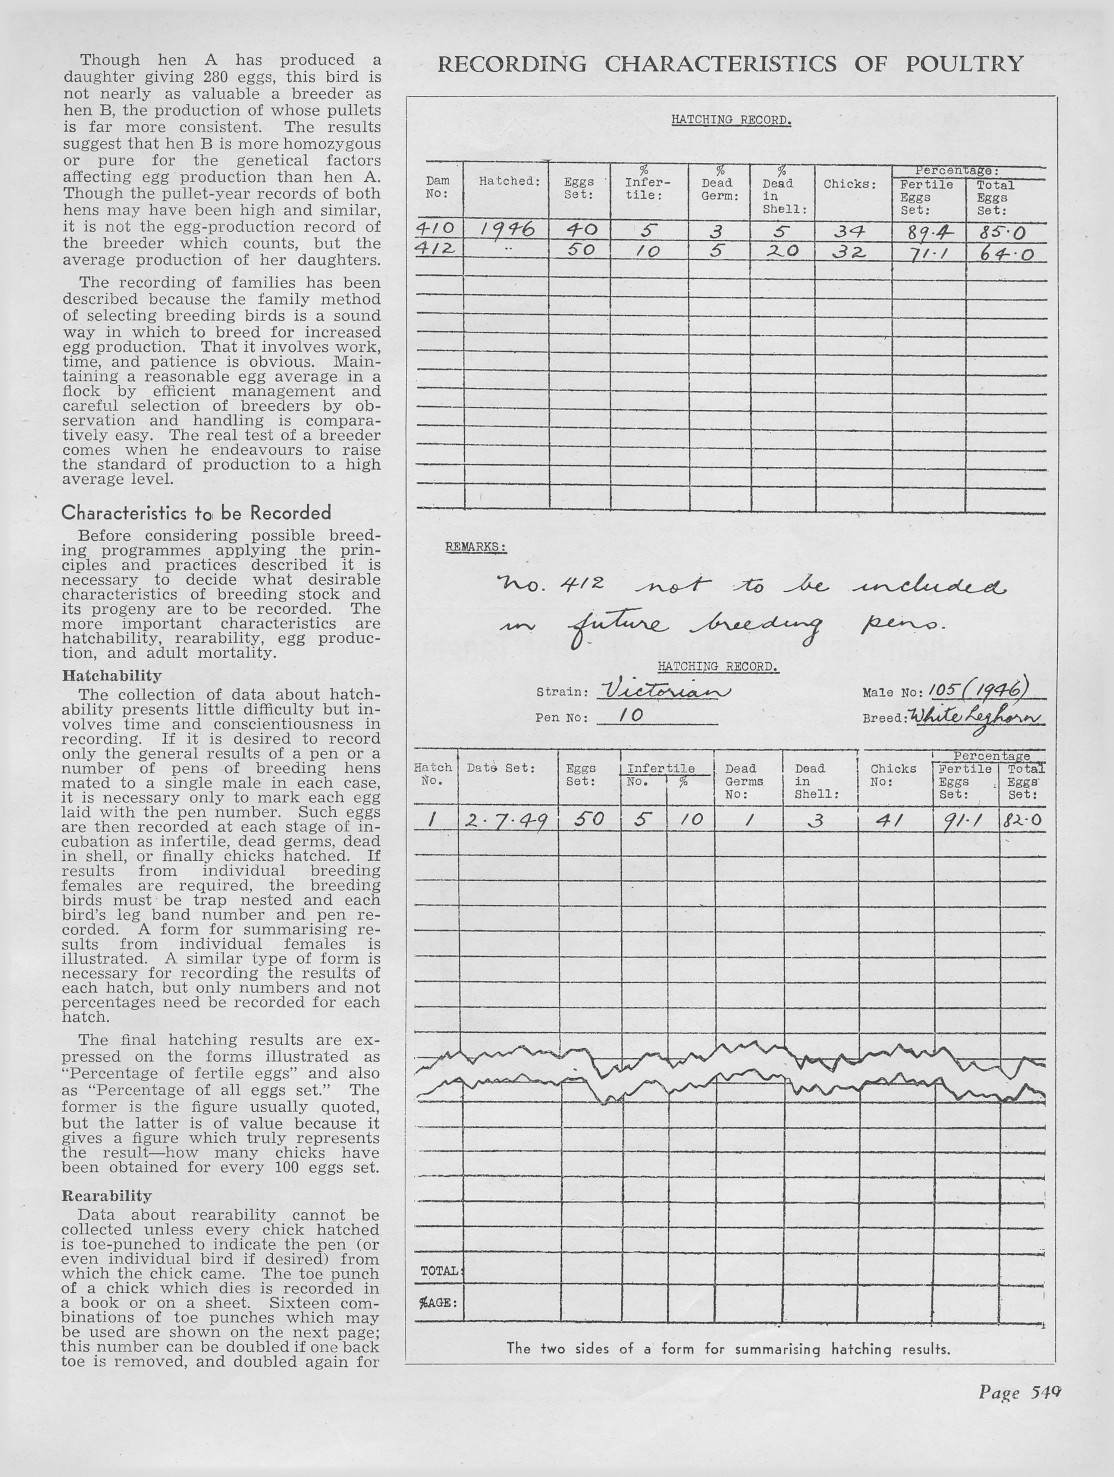 Though hen A has produced a
daughter giving 280 eggs, this bird is
not nearly as valuable a breeder as
hen B, the production of whose pullets
is far more consistent. The results
suggest that hen B is more homozygous
or pure for the genetical factors
affecting egg production than hen A.
Though the pullet-year records of both
hens may have been high and similar,
it is not the egg-production record of
the breeder which counts, but the
average production of her daughters.
The recording of families has been
described because the family method
of selecting breeding birds is a sound
way in which to breed for increased
egg production. That it involves work,
time, and patience is obvious. Main-
taining a reasonable egg average in a
flock by efficient management and
careful selection of breeders by ob-
servation and handling is compara-
tively easy. The real test of a breeder
comes when he endeavours to raise
the standard of production to a high
average level.
Characteristics to be Recorded
Before considering possible breed-
ing programmes applying the prin-
ciples and practices described it is
necessary to decide what desirable
characteristics of breeding stock and
its progeny are to be recorded. The
more important characteristics are
hatchability, rearability, egg produc-
tion, and adult mortality.
Hatchability
The collection of data about hatch-
ability presents little difficulty but in-
volves time and conscientiousness in
recording. If it is desired to record
only the general results of a pen or a
number of pens of breeding hens
mated to a single male in each case,
it is necessary only to mark each egg
laid with the pen number. Such eggs
are then recorded at each stage of in-
cubation as infertile, dead germs, dead
in shell, or finally chicks hatched. If
results from individual breeding
females are required, the breeding
birds must be trap nested and each
bird's leg band number and pen re-
corded. A form for summarising re-
sults from individual females is
illustrated. A similar type of form is
necessary for recording the results of
each hatch, but only numbers and not
percentages need be recorded for each
hatch.
The final hatching results are ex-
pressed on the forms illustrated as
"Percentage of fertile eggs" and also
as "Percentage of all eggs set." The
former is the figure usually quoted,
but the latter is of value because it
gives a figure which truly represents
the result—how many chicks have
been obtained for every 100 eggs set.
Rearability
Data about rearability cannot be
collected unless every chick hatched
is toe-punched to indicate the pen (or
even individual bird if desired) from
which the chick came. The toe punch
of a chick which dies is recorded in
a book or on a sheet. Sixteen com-
binations of toe punches which may
be used are shown on the next page;
this number can be doubled if one back
toe is removed, and doubled again for
RECORDING CHARACTERISTICS OF POULTRY
HATCHING RECORD.
Dam No: Hatched: Eggs Set: % Infer-tile: % Dead Germ: % Dead in Shell: Chicks: Percentage: Fertile Eggs Set: Total Eggs Set:
410 1946 40 5 3 5 34 89.4 85.0
412 " 50 10 5 20 32 71.1 64.0
REMARKS:
No. 412 not to be included
in future breeding pens.
HATCHING RECORD.
Strain: Victorian Male No: 105 (1946)
Pen No: 10 Breed: White Leghorn
Hatch No. Date Set: Eggs Set: Infertile No. % Dead Germs No: Dead in Shell: Chicks No: Percentage Fertile Eggs Set: Total Eggs Set:
1 2.7.49 50 5 10 1 3 41 91.1 82.0
TOTAL:
%AGE:
The two sides of a form for summarising hatching results.
Page 549